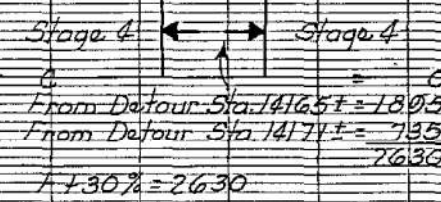 Stage 4 Stage 4
From Detour Sta. 14165± = 1895
From Detour Sta. 14171± = 735
2630
+30% = 2630